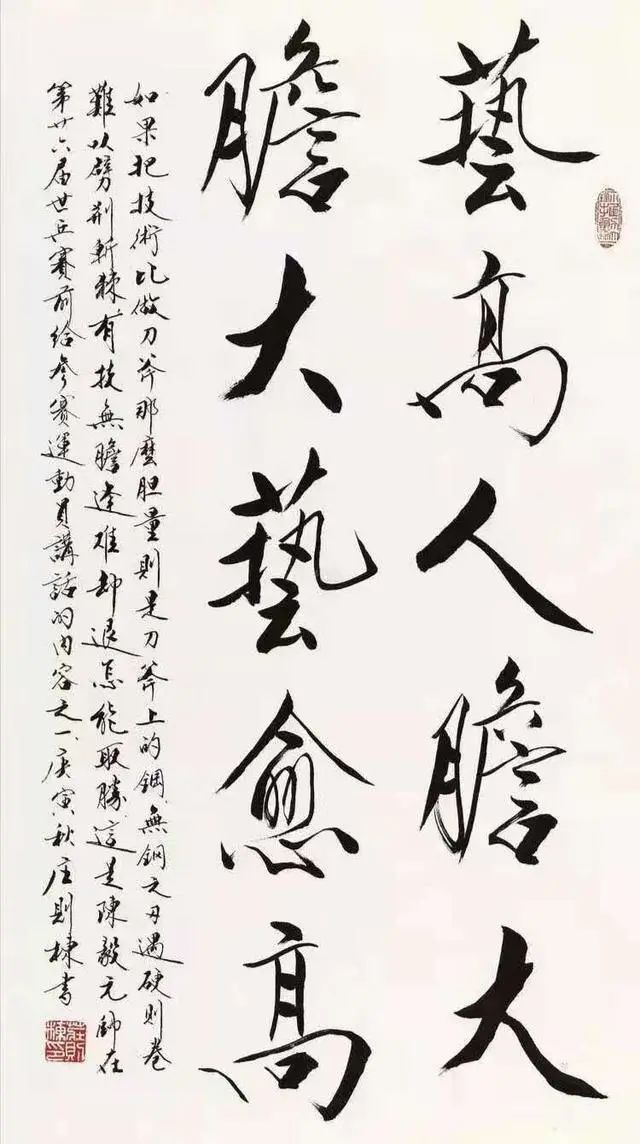 藝高人膽大
膽大藝愈高
如果把技術比做刀斧那麼胆量則是刀斧上的鋼無鋼之刃遇硬則卷
難以劈荆斬棘有技無膽逢难却退怎能取勝這是陳毅元帥在
第廿六届世乒賽前给參賽運動員講話的内容之一庚寅秋庄則棟書
莊則棟印